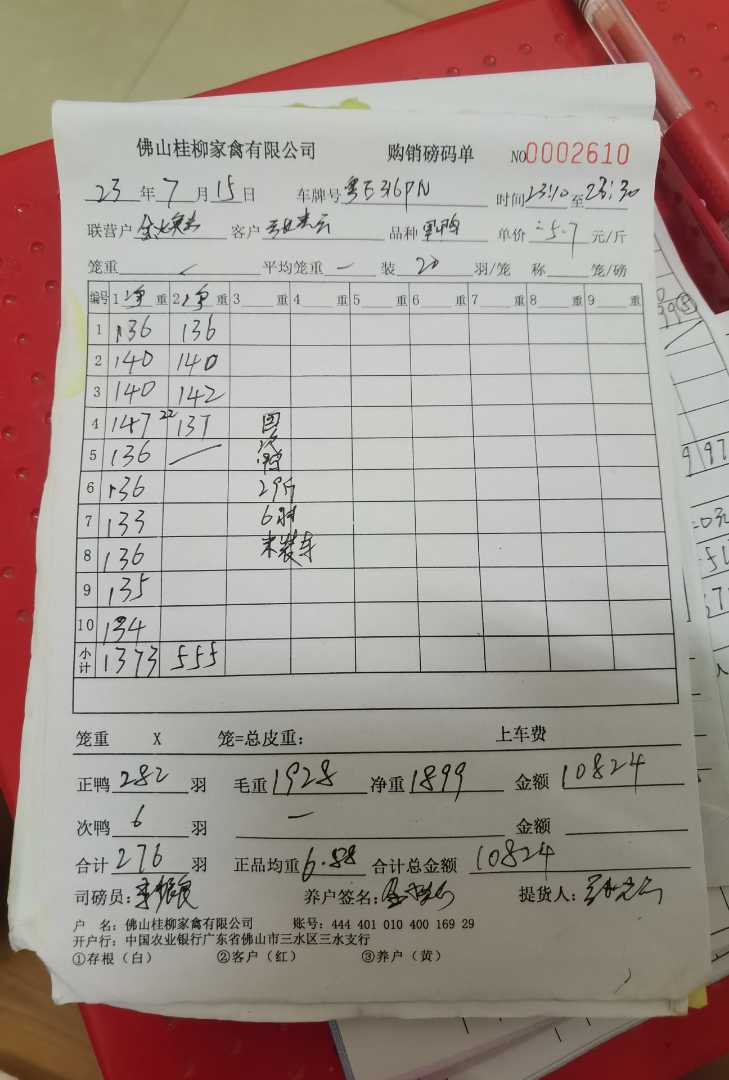 佛山桂柳家禽有限公司 购销磅码单 NO0002610
23年7月15日 车牌号粤E316PN 时间23:10至23:30
联营户 客户 品种 单价5.7元/斤
笼重 平均笼重 一 装 20 羽/笼 称 笼/磅
编号 1净重 2净重 3重 4重 5重 6重 7重 8重 9重
1 136 136
2 140 140
3 140 142
4 147 22 137
5 136 一
6 136 29斤
7 133 6羽
8 136 未装车
9 135
10 134
小计 1373 555
笼重 X 笼=总皮重: 上车费
正鸭282羽 毛重1928 净重1899 金额10824
次鸭6羽 一 金额
合计276羽 正品均重6.88 合计总金额10824
司磅员: 养户签名: 提货人:
户 名: 佛山桂柳家禽有限公司 账号: 444 401 010 400 169 29
开户行: 中国农业银行广东省佛山市三水区三水支行
①存根(白) ②客户(红) ③养户(黄)